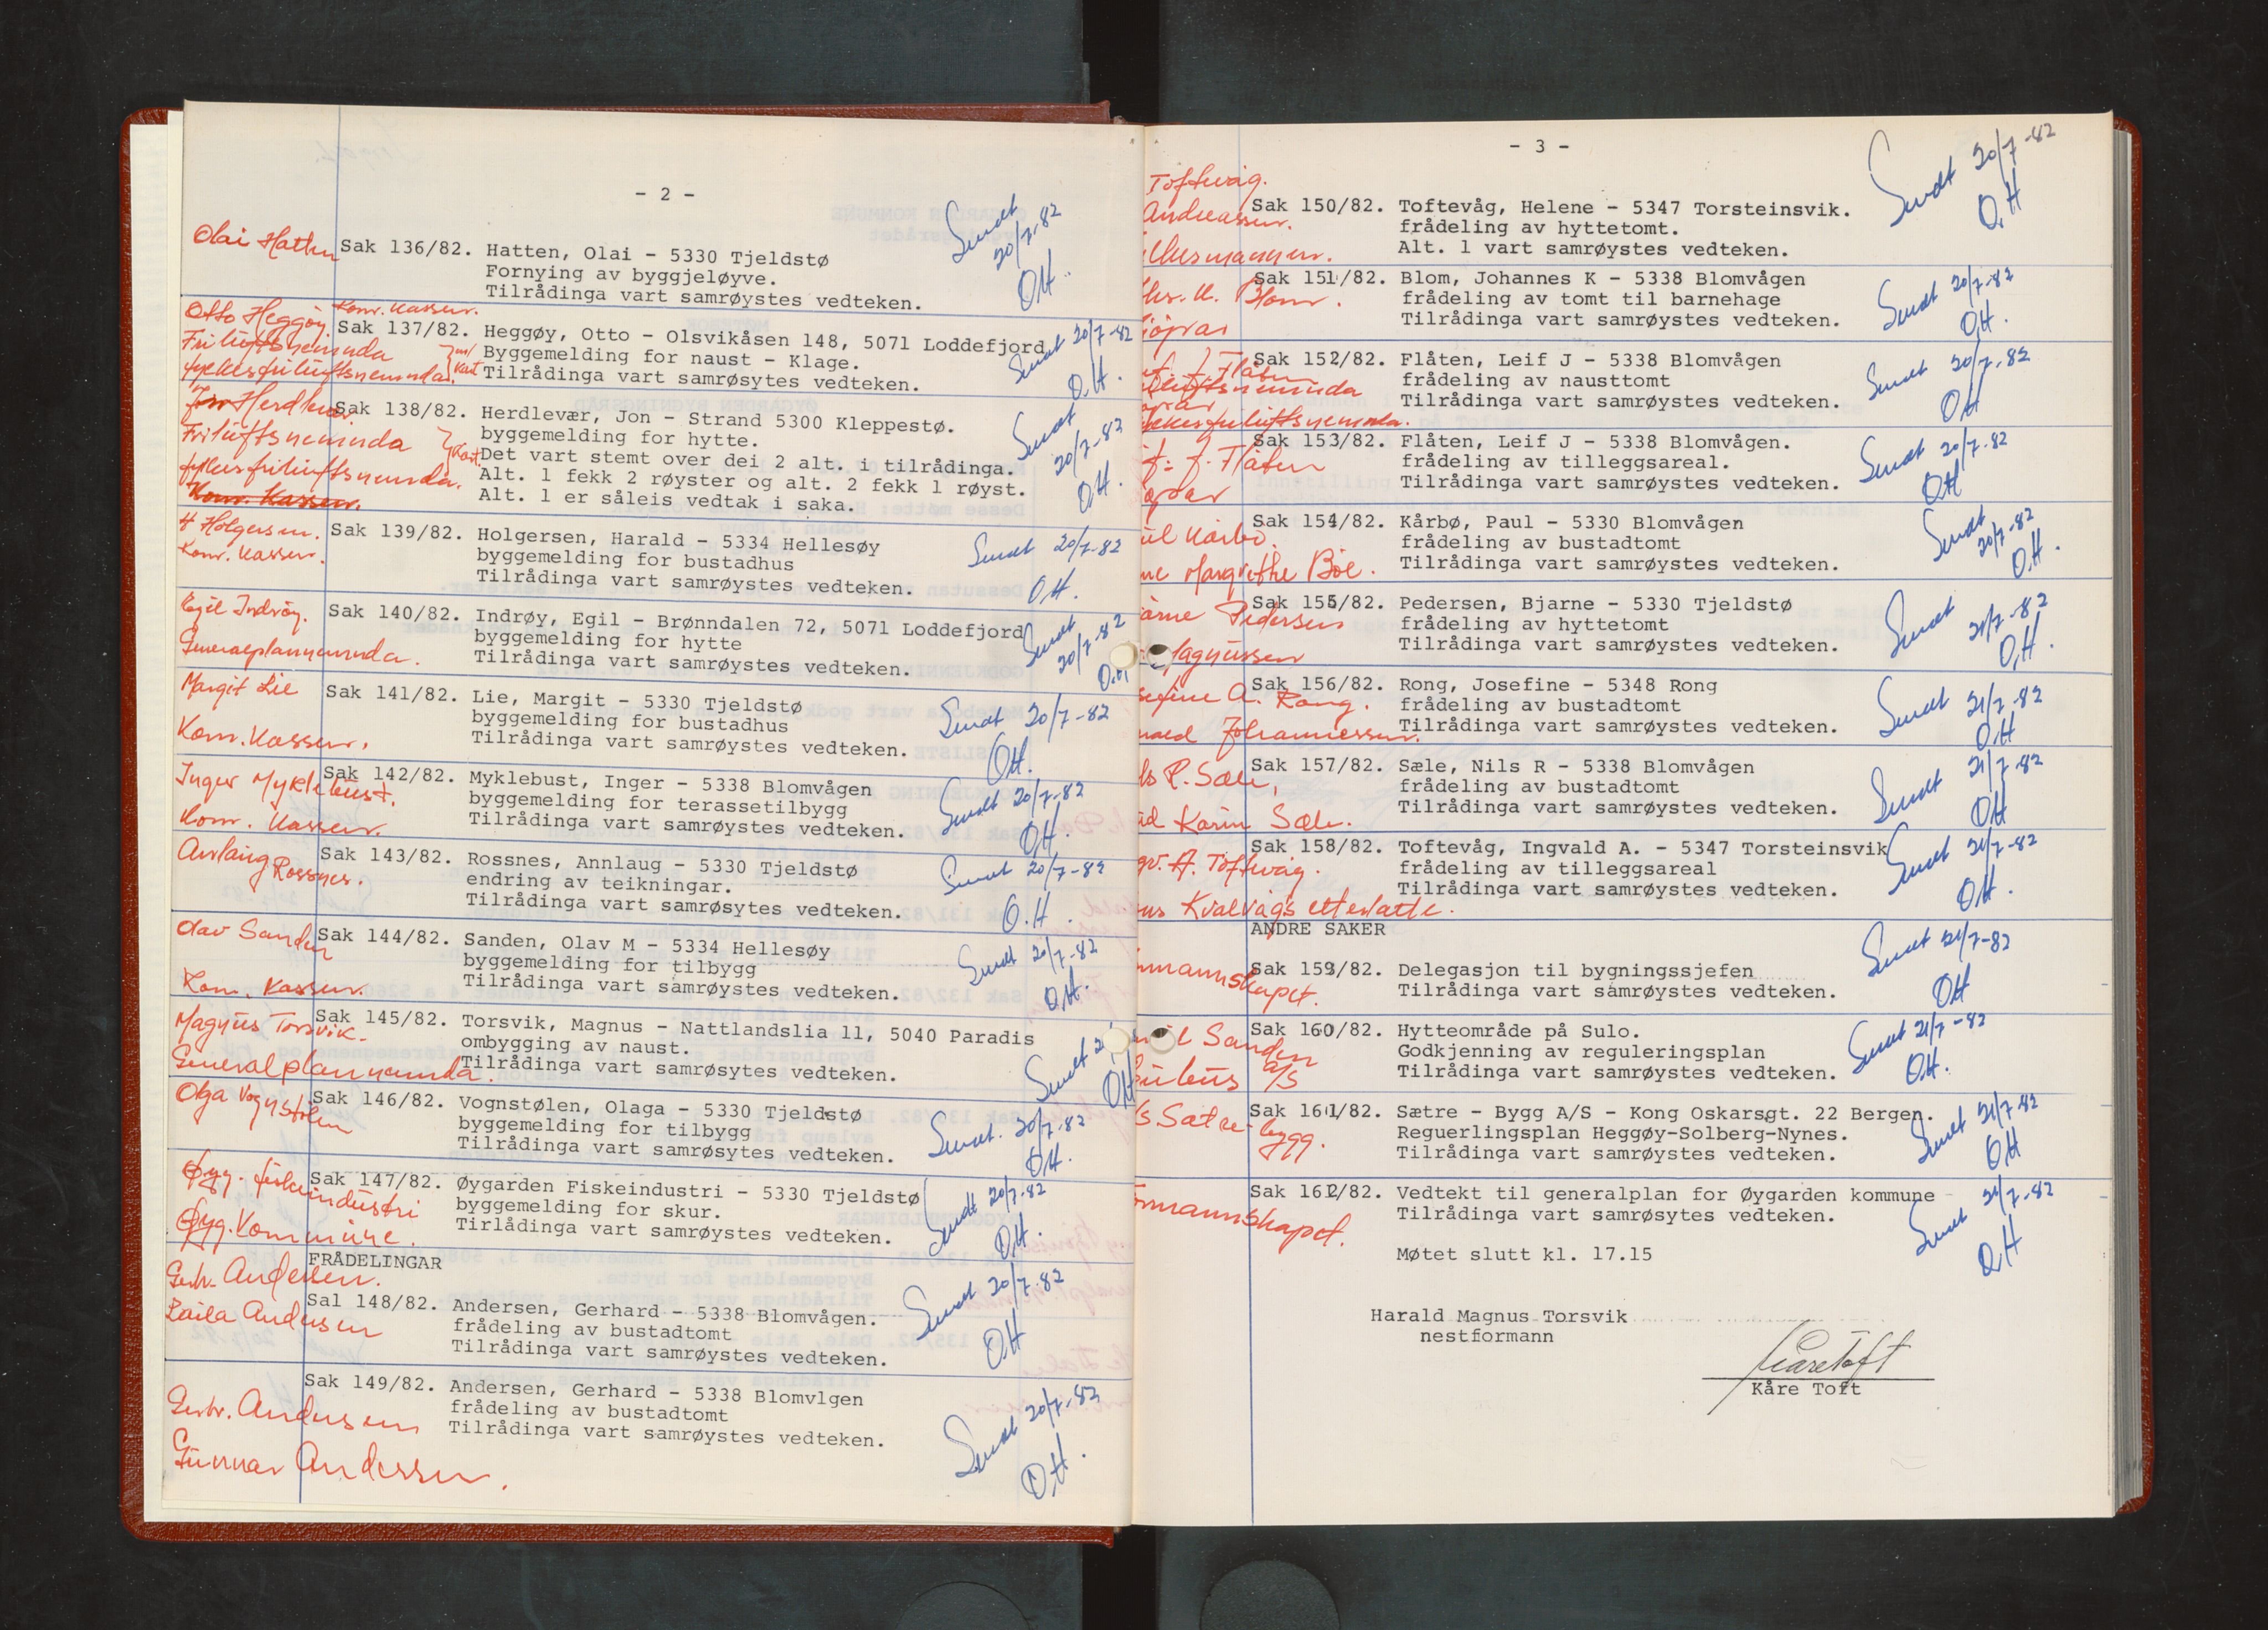 - 2 -
Olai Hatten
Sak 136/82. Hatten, Olai - 5330 Tjeldstø
Fornying av byggjeløyve.
Tilrådinga vart samrøystes vedteken.
Sendt
20/7-82
O.H.
Otto Heggøy. Kom. kassen.
Friluftsnemnda
fylkesfriluftsnemnda. m/ kart
Sak 137/82. Heggøy, Otto - Olsvikåsen 148, 5071 Loddefjord
Byggemelding for naust - Klage.
Tilrådinga vart samrøsytes vedteken.
Sendt 20/7-82
O.H.
Jon Herdlevær
Friluftsnemnda
fylkesfriluftsnemnda. kart.
Kom. kassen.
Sak 138/82. Herdlevær, Jon - Strand 5300 Kleppestø.
byggemelding for hytte.
Det vart stemt over dei 2 alt. i tilrådinga.
Alt. 1 fekk 2 røyster og alt. 2 fekk 1 røyst.
Alt. 1 er såleis vedtak i saka.
Sendt
20/7-82
O.H.
H Holgersen.
Kom. kassen.
Sak 139/82. Holgersen, Harald - 5334 Hellesøy
byggemelding for bustadhus
Tilrådinga vart samrøystes vedteken.
Sendt 20/7-82
O.H.
Egil Indrøy.
Generalplannemnda.
Sak 140/82. Indrøy, Egil - Brønndalen 72, 5071 Loddefjord
byggemelding for hytte
Tilrådinga vart samrøystes vedteken.
Sendt
20/7-82
O.H.
Margit Lie
Kom. kassen.
Sak 141/82. Lie, Margit - 5330 Tjeldstø
byggemelding for bustadhus
Tilrådinga vart samrøystes vedteken.
Sendt 20/7-82
O.H.
Inger Myklebust.
Kom. kassen.
Sak 142/82. Myklebust, Inger - 5338 Blomvågen
byggemelding for terassetilbygg
Tilrådinga vart samrøystes vedteken.
Sendt 20/7-82
O.H.
Anlaug
Rossnes.
Sak 143/82. Rossnes, Annlaug - 5330 Tjeldstø
endring av teikningar.
Tilrådinga vart samrøsytes vedteken.
Sendt 20/7-82
O.H.
Olav Sanden
Kom. kassen.
Sak 144/82. Sanden, Olav M - 5334 Hellesøy
byggemelding for tilbygg
Tilrådinga vart samrøystes vedteken.
Sendt 20/7-82
O.H.
Magnus Torsvik.
Generalplannemnda.
Sak 145/82. Torsvik, Magnus - Nattlandslia 11, 5040 Paradis
ombygging av naust.
Tilrådinga vart samrøsytes vedteken.
Sendt 2
O.H
Olga Vognstølen
Sak 146/82. Vognstølen, Olaga - 5330 Tjeldstø
byggemelding for tilbygg
Tilrådinga vart samrøsytes vedteken.
Sendt. 20/7-82
O.H.
Øyg. fiskeindustri
Øyg. Kommune.
Sak 147/82. Øygarden Fiskeindustri - 5330 Tjeldstø
byggemelding for skur.
Tirlådinga vart samrøystes vedteken.
Sendt 20/7-82
O.H.
FRÅDELINGAR
Gerh. Andersen.
Laila Andersen
Sal 148/82. Andersen, Gerhard - 5338 Blomvågen.
frådeling av bustadtomt
Tilrådinga vart samrøystes vedteken.
Sendt 20/7-82
O.H
Gerh. Andersen
Gunnar Andersen.
Sak 149/82. Andersen, Gerhard - 5338 Blomvlgen
frådeling av bustadtomt
Tilrådinga vart samrøystes vedteken.
Sendt 20/7-82
O.H.
- 3 -
Toftevåg.
Andreassen.
Sak 150/82. Toftevåg, Helene - 5347 Torsteinsvik.
frådeling av hyttetomt.
Alt. 1 vart samrøystes vedteken.
Sendt 20/7-82
O.H
Blom.
Sak 151/82. Blom, Johannes K - 5338 Blomvågen
frådeling av tomt til barnehage
Tilrådinga vart samrøystes vedteken.
Sendt 20/7-82
O.H.
J. Flåten
Sak 152/82. Flåten, Leif J - 5338 Blomvågen
frådeling av nausttomt
Tilrådinga vart samrøystes vedteken.
Sendt 20/7-82
O.H
J. Flåten
Sak 153/82. Flåten, Leif J - 5338 Blomvågen.
frådeling av tilleggsareal.
Tilrådinga vart samrøystes vedteken.
Sendt 20/7-82
O.H
Kårbø.
Margrethe Böe.
Sak 154/82. Kårbø, Paul - 5330 Blomvågen
frådeling av bustadtomt
Tilrådinga vart samrøystes vedteken.
Sendt
20/7-82
O.H.
Pedersen
Magnussen
Sak 155/82. Pedersen, Bjarne - 5330 Tjeldstø
frådeling av hyttetomt
Tilrådinga vart samrøystes vedteken.
Sendt 21/7-82
O.H.
A. Rong.
Johannessen.
Sak 156/82. Rong, Josefine - 5348 Rong
frådeling av bustadtomt
Tilrådinga vart samrøystes vedteken.
Sendt 21/7-82
O.H
R. Sæle.
Karin Sæle.
Sak 157/82. Sæle, Nils R - 5338 Blomvågen
frådeling av bustadtomt
Tilrådinga vart samrøystes vedteken.
Sendt 21/7-82
O.H
A. Toftevåg.
Kvalvågs etterlatte.
Sak 158/82. Toftevåg, Ingvald A. - 5347 Torsteinsvik
frådeling av tilleggsareal
Tilrådinga vart samrøystes vedteken.
Sendt 21/7-82
O.H.
ANDRE SAKER
rmannskapet.
Sak 159/82. Delegasjon til bygningssjefen
Tilrådinga vart samrøystes vedteken.
Sendt 21/7-82
O.H
Sanden
A/S
Sak 160/82. Hytteområde på Sulo.
Godkjenning av reguleringsplan
Tilrådinga vart samrøystes vedteken.
Sendt 21/7-82
O.H.
Sætre-bygg.
Sak 161/82. Sætre - Bygg A/S - Kong Oskarsgt. 22 Bergen.
Reguerlingsplan Heggøy-Solberg-Nynes.
Tilrådinga vart samrøystes vedteken.
Sendt 21/7-82
O.H
ormannskapet.
Sak 162/82. Vedtekt til generalplan for Øygarden kommune
Tilrådinga vart samrøsytes vedteken.
Sendt 21/7-82
O.H
Møtet slutt kl. 17.15
Harald Magnus Torsvik
nestformann
Kåre Toft
Kåre Toft